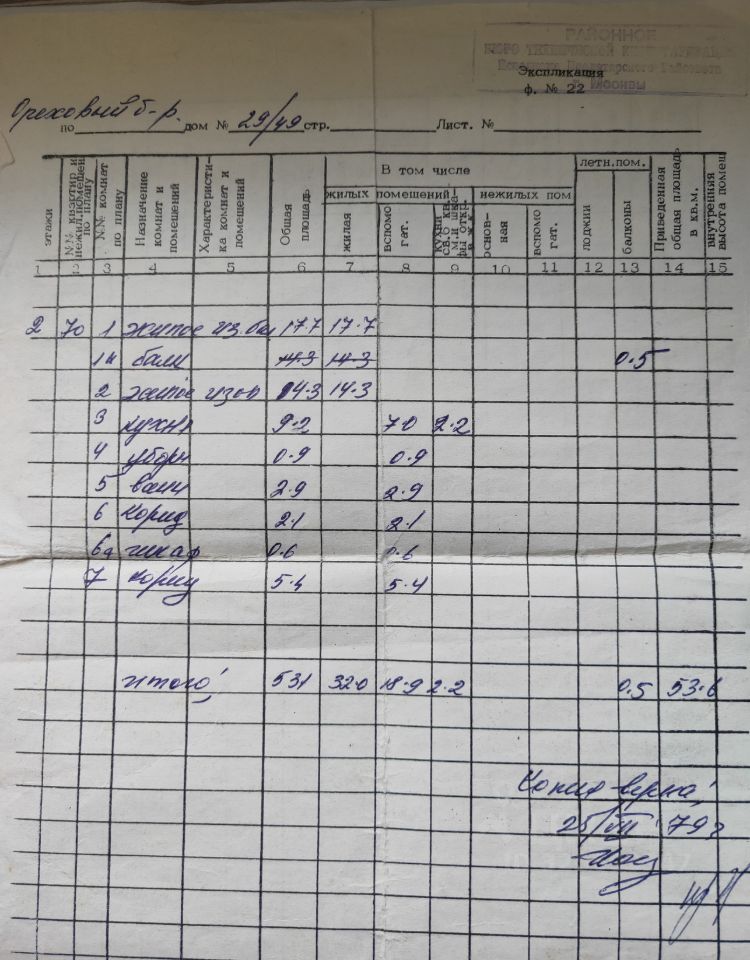 РАЙОННОЕ
БЮРО ТЕХНИЧЕСКОЙ ИНВЕНТАРИЗАЦИИ
Экспликация
ф. № 22
Москвы
Ореховый б-р.
по дом № 29/49 стр. Лист. №
этажи
№№ квартир и нежил.помещен по плану
№№ комнат по плану
Назначение комнат и помещений
Характеристика комнат и помещений
Общая площадь
В том числе
жилых помещений
жилая
вспомогат.
кухни св.о кв м.и шкафы откр
нежилых пом
основная
вспомогат.
летн.пом.
лоджии
балконы
Приведенная общая площадь в кв.м.
внутренняя высота помещ
1 2 3 4 5 6 7 8 9 10 11 12 13 14 15
2 70 1 жилое из.бал 17.7 17.7
1а балк 14.3 14.3 0.5
2 жилое изол 14.3 14.3
3 кухня 9.2 70 2.2
4 уборн 0.9 0.9
5 ванн 2.9 2.9
6 корид 2.1 2.1
6а шкаф 0.6 0.6
7 корид 5.4 5.4
итого: 531 320 18.9 2.2 0.5 53.6
Копия верна!
25/VII 79г